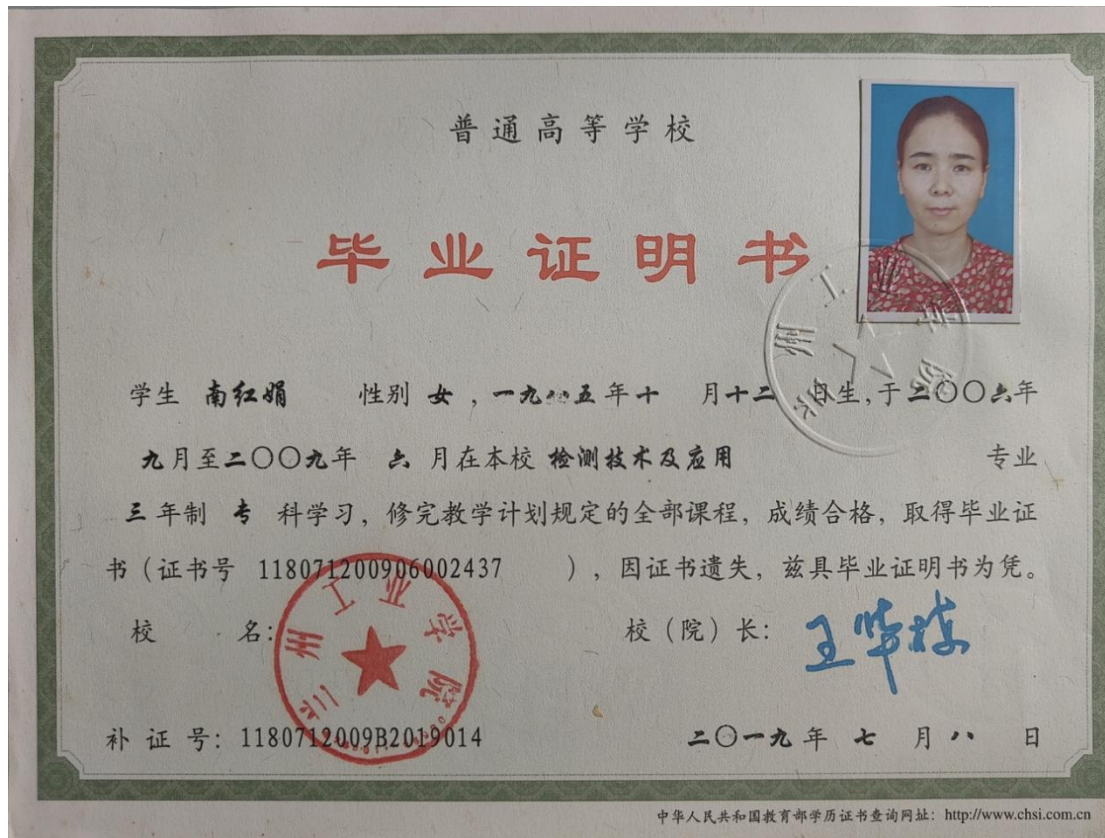 普通高等学校
毕业证明书
学生 南红娟 性别 女 ，一九八五年十 月十二 日生，于二〇〇六年
九月至二〇〇九年 六 月在本校 检测技术及应用 专业
三 年制 专 科学习，修完教学计划规定的全部课程，成绩合格，取得毕业证
书（证书号 118071200906002437 ），因证书遗失，兹具毕业证明书为凭。
校 名： 校（院）长： 王华栋
兰州工业学院
补 证 号：1180712009B2019014 二〇一九 年 七 月 八 日
中华人民共和国教育部学历证书查询网址：http://www.chsi.com.cn